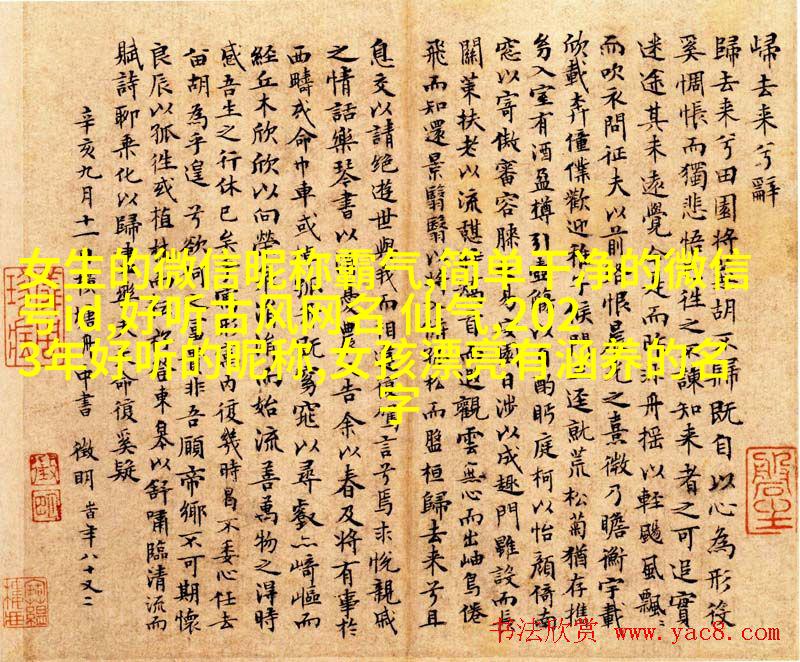 歸去来兮辭
歸去来兮田園将蕪胡不歸既自以心為形役
奚惆悵而獨悲悟已往之不諫知来者之可追實
迷途其未遠覺今是而昨非舟摇以輕颺風飄〻
而吹衣問征夫以前路恨晨光之熹微乃瞻衡宇載
欣載奔僮僕歡迎稚子候門三逕就荒松菊猶存攜
幼入室有酒盈樽引壺觴以自酌眄庭柯以怡顔倚南
窓以寄傲審容膝之易安園日涉以成趣門雖設而長
關策扶老以流憩時矯首而遐觀雲無心而出岫鳥倦
飛而知還景翳翳以将入撫孤松而盤桓歸去来兮且
息交以請絶遊世與我而相遺復駕言兮焉求悦親戚
之情話樂琴書以消憂農人告余以春及将有事於
西疇或命巾車或棹孤舟既窈窕以尋壑亦崎嶇而
經丘木欣欣以向榮泉涓涓而始流善萬物之得時
感吾生之行休已矣乎寓形宇内復幾時曷不委心任去
留胡為乎遑遑兮欲何之富貴非吾願帝鄉不可期懷
良辰以孤往或植杖而耘耔登東皋以舒嘯臨清流而
賦詩聊乗化以歸盡樂夫天命復奚疑
辛亥九月十一日横塘舟中書 徵明 時年八十又二
女生的微信昵称霸气,简单干净的微信
号id,好听古风网名 仙气,202
3年好听的昵称,女孩漂亮有涵养的名
字
书法欣赏 www.yac8.com